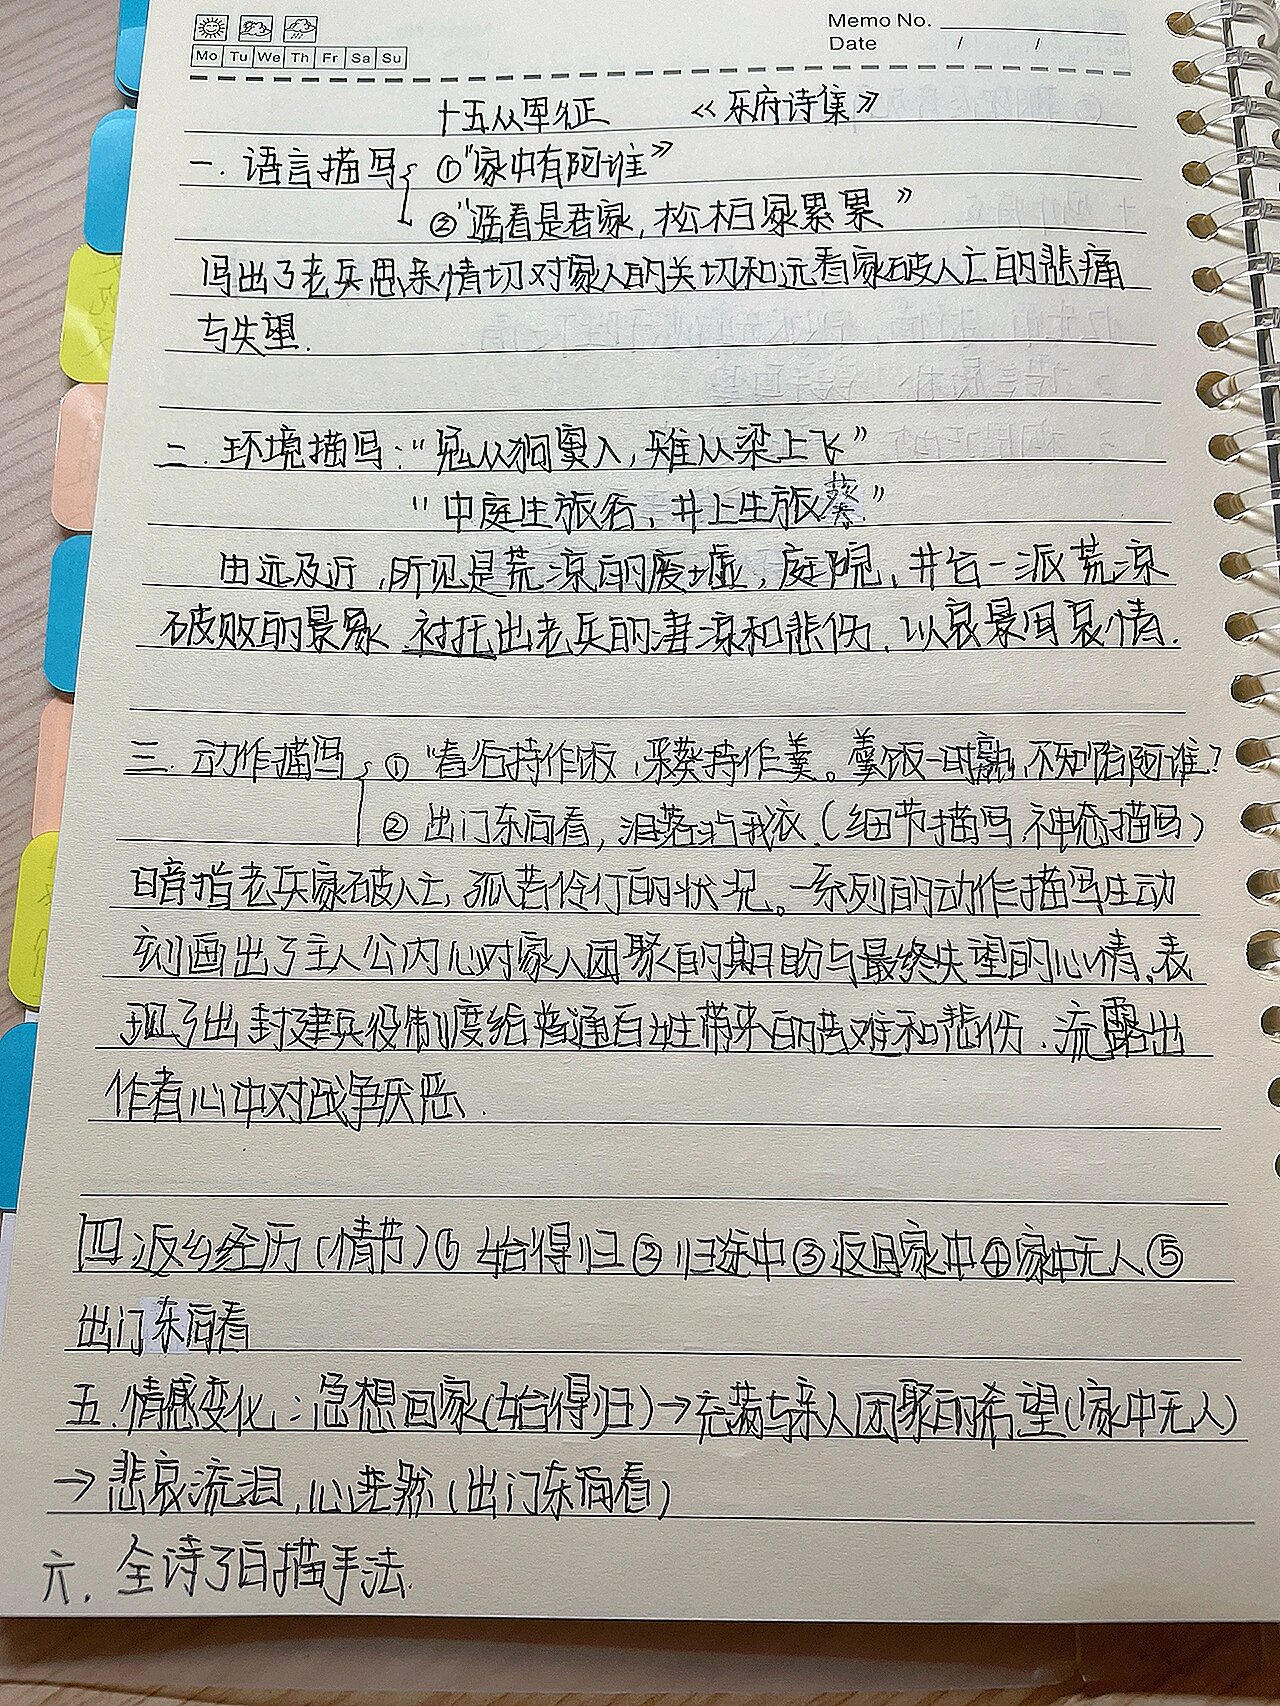 Memo No.
Mo Tu We Th Fr Sa Su
Date / /
十五从军征 《乐府诗集》
一.语言描写 ①"家中有阿谁"
②"遥看是君家,松柏冢累累"
写出了老兵思亲情切对家人的关切和远看家破人亡的悲痛
与失望.
二.环境描写:"兔从狗窦入,雉从梁上飞"
"中庭生旅谷,井上生旅葵."
由远及近,所见是荒凉的废墟,庭院,井台一派荒凉
破败的景象 衬托出老兵的凄凉和悲伤.以哀景写哀情.
三.动作描写 ①"舂谷持作饭,采葵持作羹。羹饭一时熟,不知饴阿谁?
②出门东向看,泪落沾我衣.(细节描写,神态描写)
暗指老兵家破人亡,孤苦伶仃的状况。一系列的动作描写生动
刻画出了主人公内心对家人团聚的期盼与最终失望的心情,表
现了出封建兵役制度给普通百姓带来的苦难和悲伤.流露出
作者心中对战争厌恶.
四返乡经历(情节)① 始得归②归途中③返回家中④家中无人⑤
出门东向看
五.情感变化:急想回家(始得归)→充满与亲人团聚的希望(家中无人)
→悲哀流泪,心茫然(出门东向看)
六.全诗了白描手法.